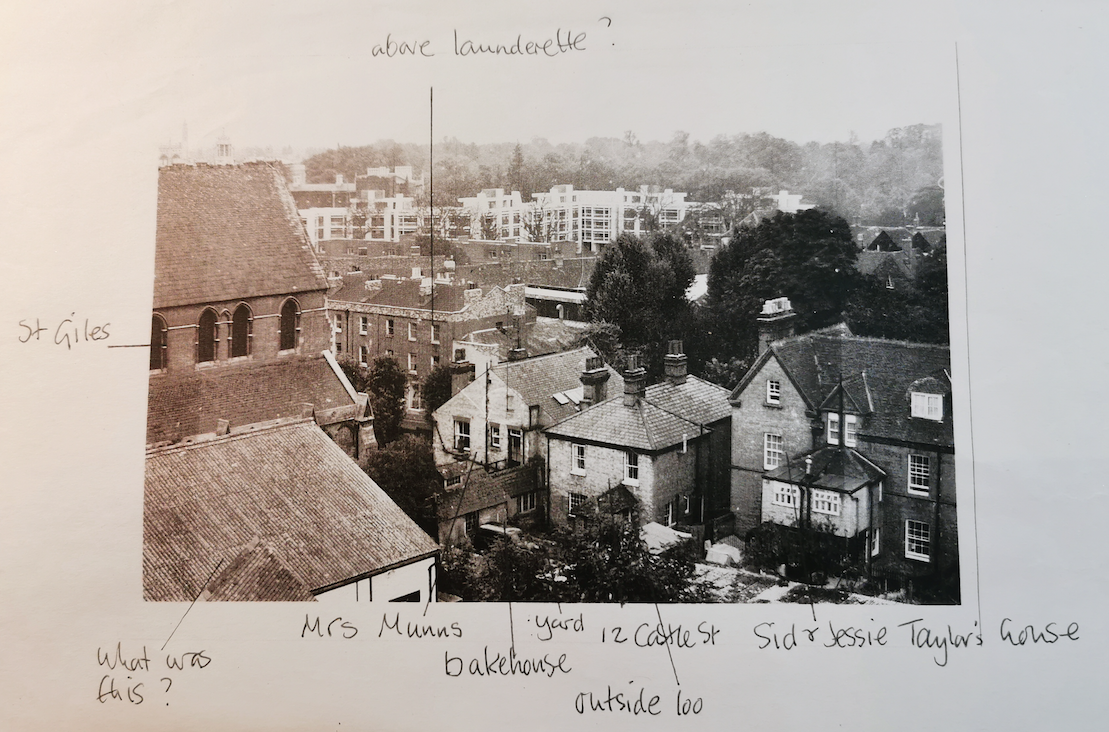 above launderette?
St Giles
Mrs Munns
yard
12 Castle St
Sid & Jessie Taylor's house
What was
this?
bakehouse
outside loo